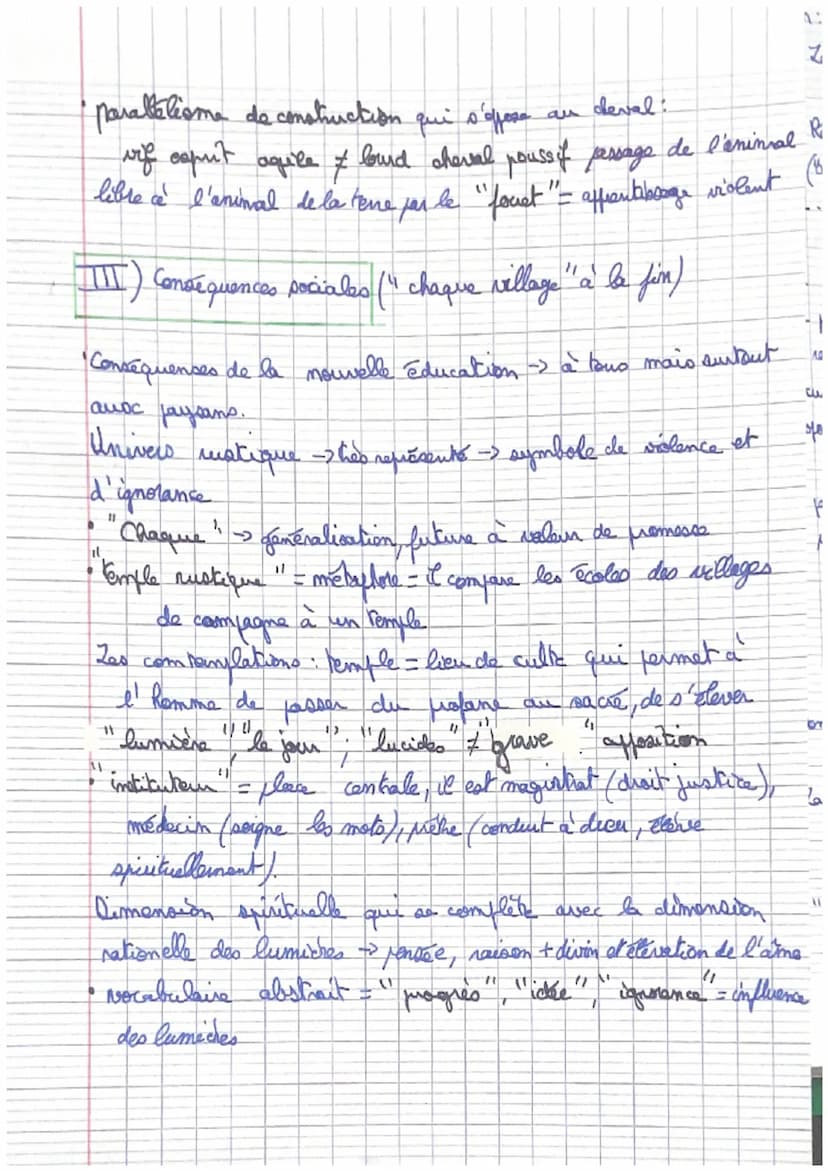 • parallélisme de construction qui s'oppose au cheval :
vif esprit agile ≠ lourd cheval poussif passage de l'animal
libre à l'animal de la terre par le "fouet" = apprentissage violent
III) Conséquences sociales (" chaque village" à la fin)
• Conséquences de la nouvelle éducation -> à tous mais surtout
aux paysans.
Univers rustique -> très représenté -> symbole de violence et
d'ignorance
• "Chaque" -> généralisation, future à valeur de promesse
• "temple rustique" = métaphore = il compare les écoles des villages
de campagne à un temple
Les comtemplations : temple = lieu de culte qui permet à
l'homme de passer du profane au sacré, de s'élever
"lumière", "le jour" ; "lucides" ≠ "grave " apposition
• "instituteur" = place centrale, il est magistrat (droit justice),
médecin (soigne les mots), prêtre (conduit à dieu, élève
spirituellement).
Dimension spirituelle qui se complète avec la dimension
rationelle des lumières -> pensée, raison + divin et élévation de l'âme
• vocabulaire abstrait = "progrès", "idée", "ignorance" = influence
des lumières